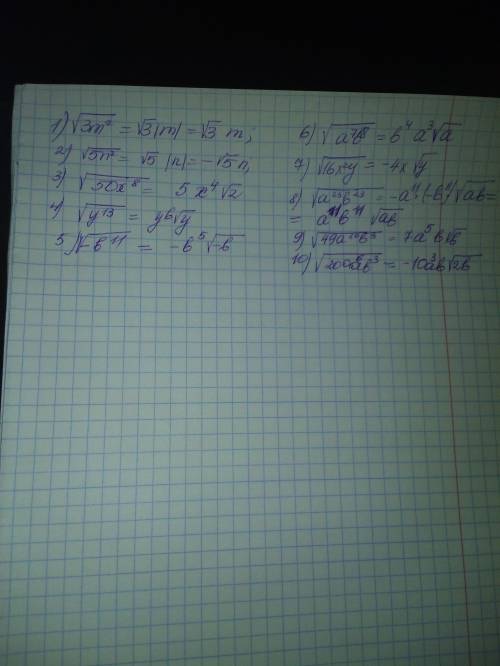 1) √3m² = √3|m| = √3 m;
2) √5n² = √5 |n| = -√5n,
3) √50x⁸ = 5x⁴√2
4) √y¹³ = y⁶√y
5) √-b¹¹ = -b⁵√-b
6) √a⁷b⁸ = b⁴a³√a
7) √16x²y = -4x√y
8) √a²³b²³ = -a¹¹·(-b¹¹)√ab =
= a¹¹b¹¹ √ab
9) √49a¹⁰b³ = 7a⁵b√b
10) √200a⁶b³ = -10a³b√2b